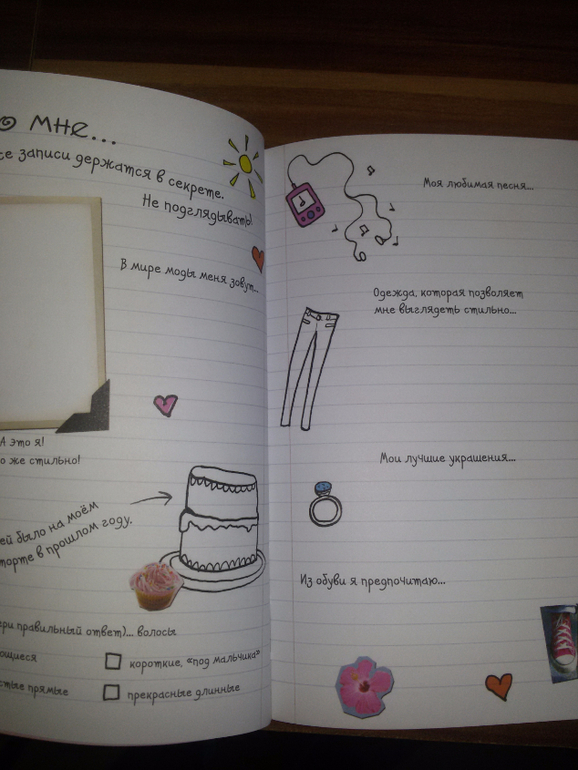 о мне...
все записи держатся в секрете.
Не подглядывать!
В мире моды меня зовут...
А это я!
же стильно!
было на моём
торте в прошлом году.
правильный ответ)... волосы
короткие, «под мальчика»
прямые
прекрасные длинные
Моя любимая песня...
Одежда, которая позволяет
мне выглядеть стильно...
Мои лучшие украшения...
Из обуви я предпочитаю...